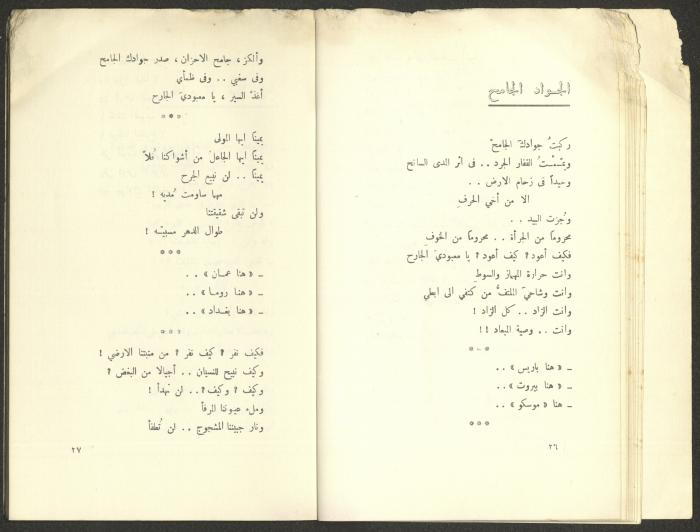 الجواد الجامح
ركبتُ جوادك الجامحْ
ويمّمْتُ القفار الجرد . . فى اثر الندى السانح
وحيداً فى زحام الارض . .
الا من أخي الحرفِ
وجُزت البيد . .
محروماً من الجرأة . . محروماً من الخوفِ
فكيف أعود؟ كيف أعود؟ يا معبوديَ الجارح
وانت حرارة المهماز والسوطِ
وانت وشاحيَ الملتفُّ من كتفي الى ابطي
وانت الزاد . . كل الزاد !
وانت . . وصية الميعاد ! !
* - *
ـ « هنا باريس » . .
ـ « هنا بيروت » . .
ـ هنا « موسكو » . .
* * *
٢٦
وألكز ، جامح الاحزان ، صدر جوادك الجامح
وفى سغبي . . وفى ظمأي
أغذّ السير ، يا معبوديَ الجارح
* * *
يميناً ايها المولى
يميناً ايها الجاعل من أشواكنا فُلاّ
يميناً . . لن نبيع الجرح
مهما ساومت مُديه !
ولن تبقى شقيقتنا
طوال الدهر مسبيّه !
* * *
ـ « هنا عمان » . .
ـ « هنا روما » . .
ـ « هنا بغداد » . .
* * *
فكيف نفر ؟ كيف نفر ؟ من منبتنا الارضي !
وكيف نبيح للنسيان . . أجيالا من البغض ؟
وكيف ؟ وكيف ؟ . . لن نهدأ !
وملء عيوننا المرفأ
ونار جبيننا المشجوج . . لن تُطفأ
٢٧